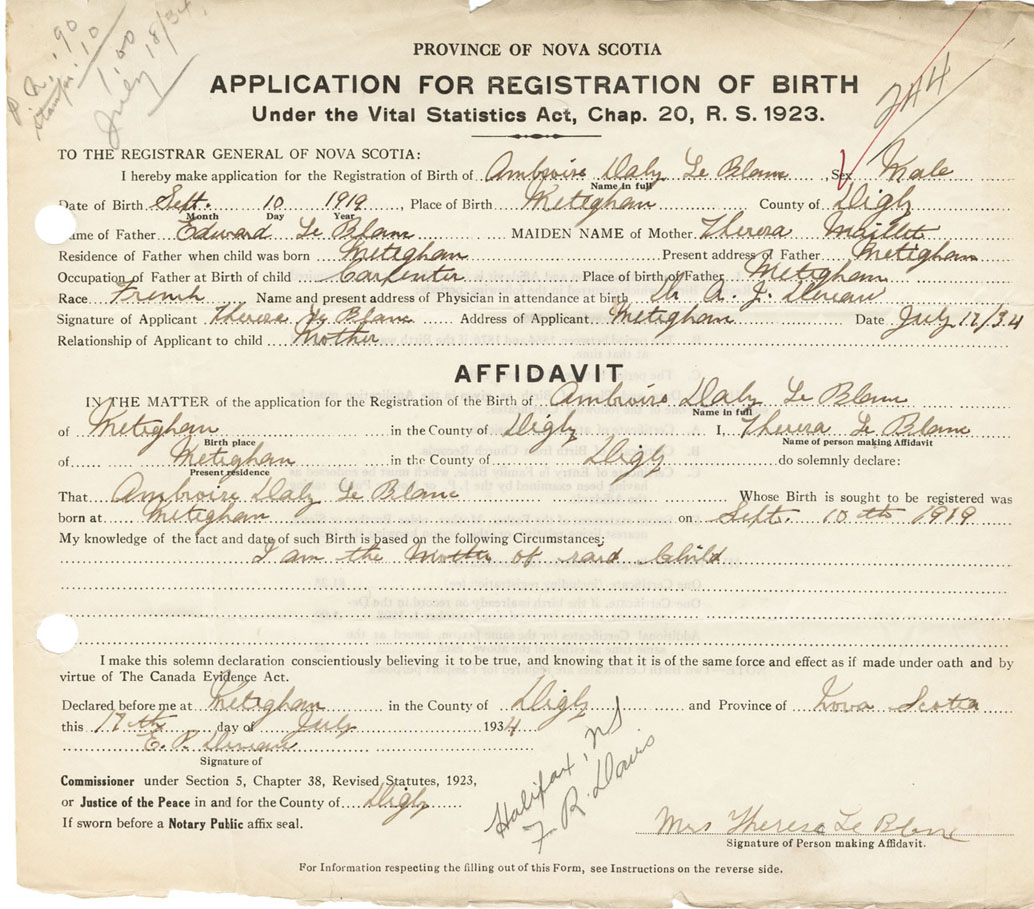 P. R. .90
Stamps .10
1.00
July 18/34
PROVINCE OF NOVA SCOTIA
APPLICATION FOR REGISTRATION OF BIRTH
244
Under the Vital Statistics Act, Chap. 20, R. S. 1923.
TO THE REGISTRAR GENERAL OF NOVA SCOTIA:
I hereby make application for the Registration of Birth of Ambroise Daly Le Blanc, Sex Male
Name in full
Date of Birth Sept. 10 1919, Place of Birth Meteghan County of Digby
Month Day Year
Name of Father Edward Le Blanc MAIDEN NAME of Mother Theresa Maillet
Residence of Father when child was born Meteghan Present address of Father Meteghan
Occupation of Father at Birth of child Carpenter Place of birth of Father Meteghan
Race French Name and present address of Physician in attendance at birth Dr A. J.
Signature of Applicant Theresa Le Blanc Address of Applicant Meteghan Date July 17/34
Relationship of Applicant to child Mother
AFFIDAVIT
IN THE MATTER of the application for the Registration of the Birth of Ambroise Daly Le Blanc
Name in full
of Meteghan in the County of Digby I, Theresa Le Blanc
Birth place Name of person making Affidavit
of Meteghan in the County of Digby do solemnly declare:
Present residence
That Ambroise Daly Le Blanc Whose Birth is sought to be registered was
born at Meteghan on Sept. 10th 1919
My knowledge of the fact and date of such Birth is based on the following Circumstances;
I am the Mother of said Child
I make this solemn declaration conscientiously believing it to be true, and knowing that it is of the same force and effect as if made under oath and by
virtue of The Canada Evidence Act.
Declared before me at Meteghan in the County of Digby and Province of Nova Scotia
this 17th day of July 1934
E. P.
Signature of
Commissioner under Section 5, Chapter 38, Revised Statutes, 1923,
or Justice of the Peace in and for the County of Digby
If sworn before a Notary Public affix seal.
Halifax, NS
F. R. Davis
Mrs Theresa Le Blanc
Signature of Person making Affidavit.
For Information respecting the filling out of this Form, see Instructions on the reverse side.